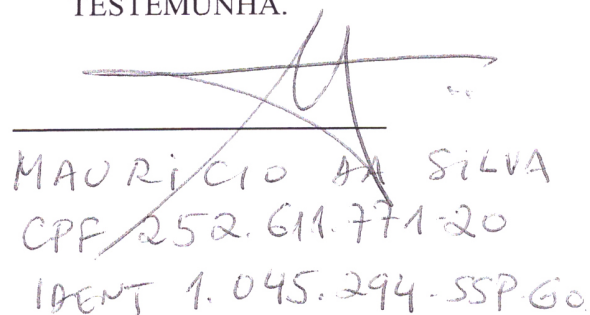 TESTEMUNHA.
MAURICIO DA SILVA
CPF 252.611.771-20
IDENT 1.045.294-SSP-GO